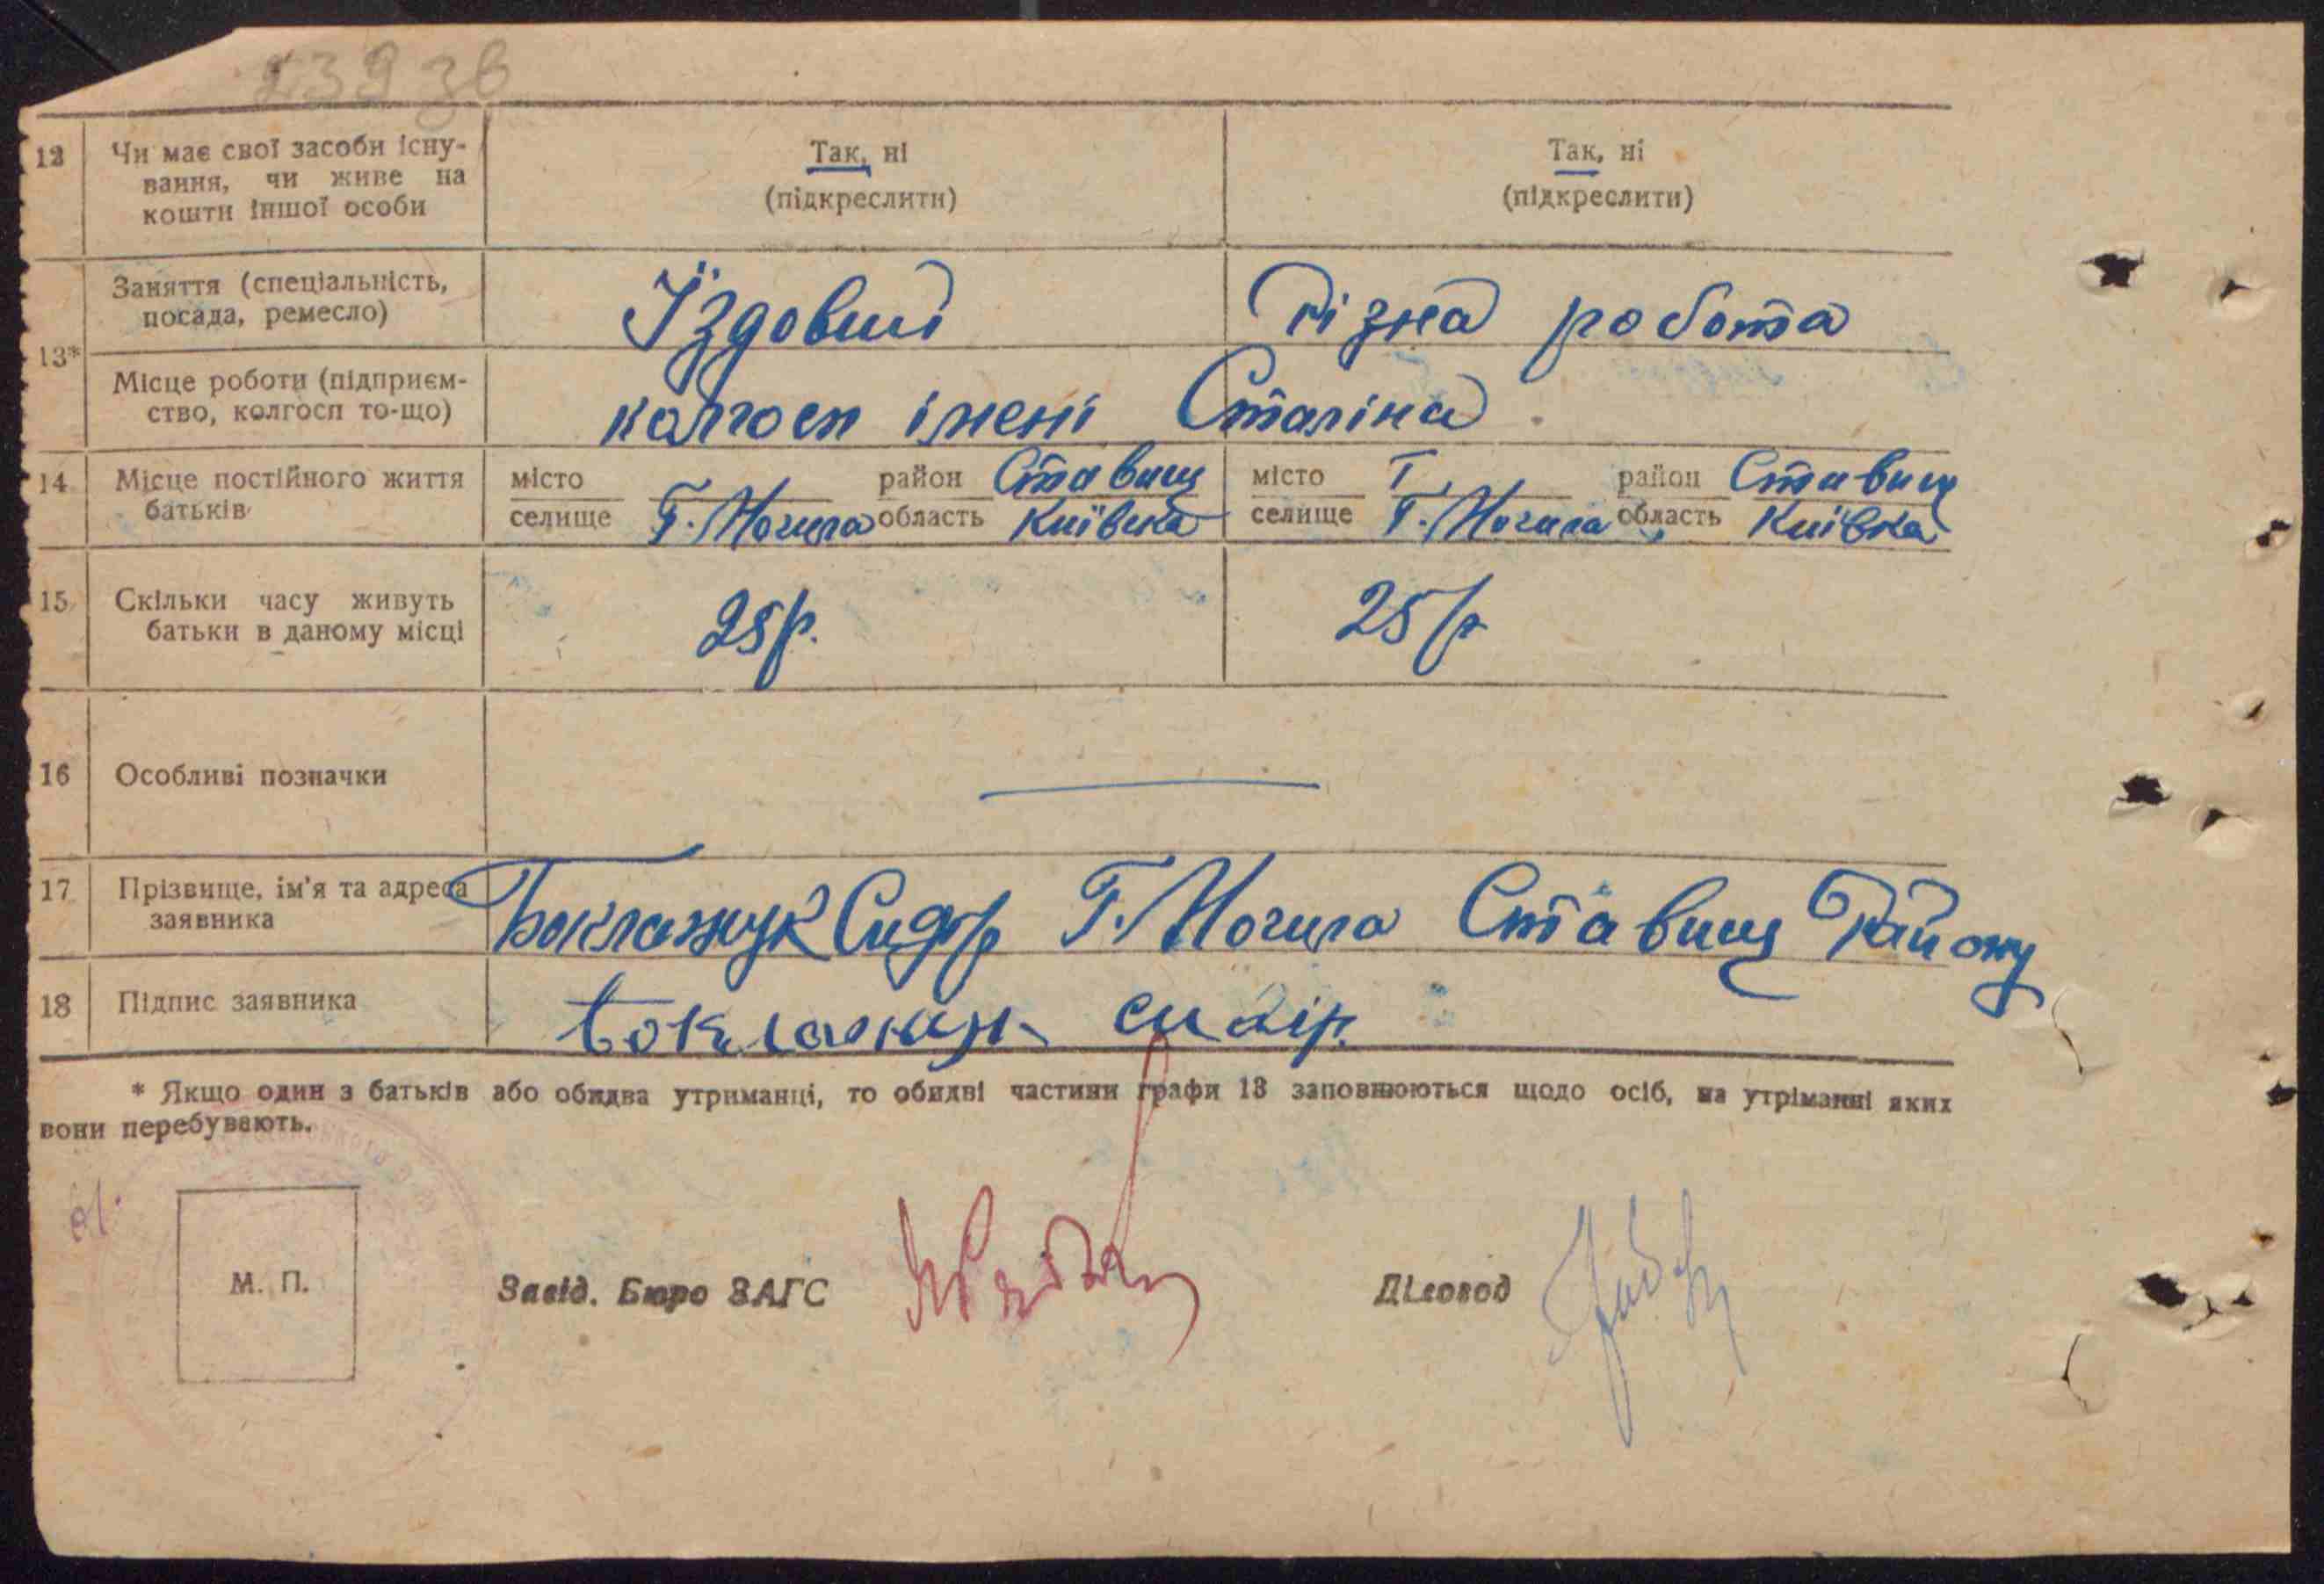 239 зв
12 Чи має свої засоби існу-
вання, чи живе на
кошти іншої особи
Так, ні
(підкреслити)
Так, ні
(підкреслити)
13*
Заняття (спеціальність,
посада, ремесло)
Їздовий
Різна робота
Місце роботи (підприєм-
ство, колгосп то-що)
колгосп імені Сталіна
14 Місце постійного життя
батьків
місто район Ставищ
селище Г. Могила область Київська
місто район Ставищ
селище Г. Могила область Київська
15 Скільки часу живуть
батьки в даному місці
25 р.
25 р
16 Особливі позначки
17 Прізвище, ім'я та адреса
заявника
Боклажук Сидор Г. Могила Ставищ Району
18 Підпис заявника
Боклажук Сидір.
* Якщо один з батьків або обидва утриманці, то обидві частини графи 13 заповнюються щодо осіб, на утріманні яких
вони перебувають.
М. П.
Завід. Бюро ЗАГС
Діловод